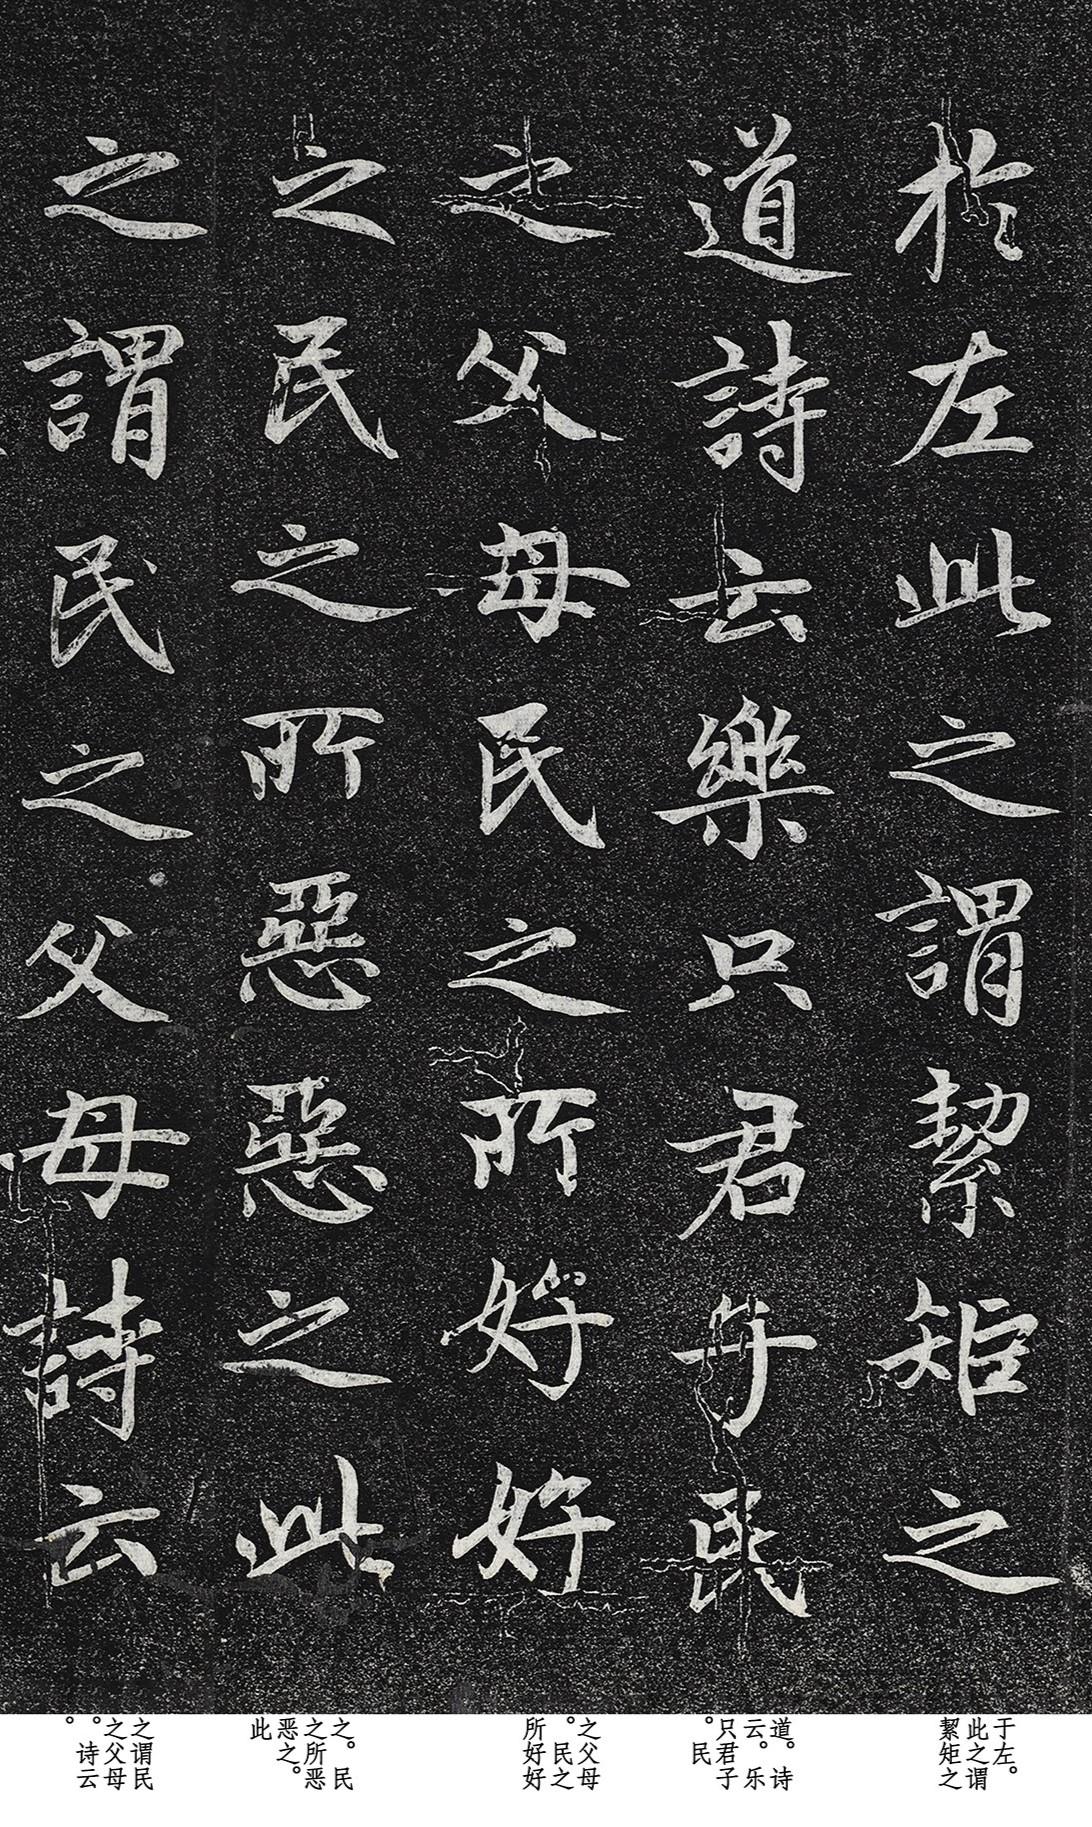 於左此之謂絜矩之
道詩云樂只君子民
之父母民之所好好
之民之所惡惡之此
之謂民之父母詩云
于左。
此之谓
絜矩之
道。诗
云。乐
只君子
。民
之父母
。民之
所好好
之。民
之所恶
恶之。
此
之谓民
之父母
。诗云
。